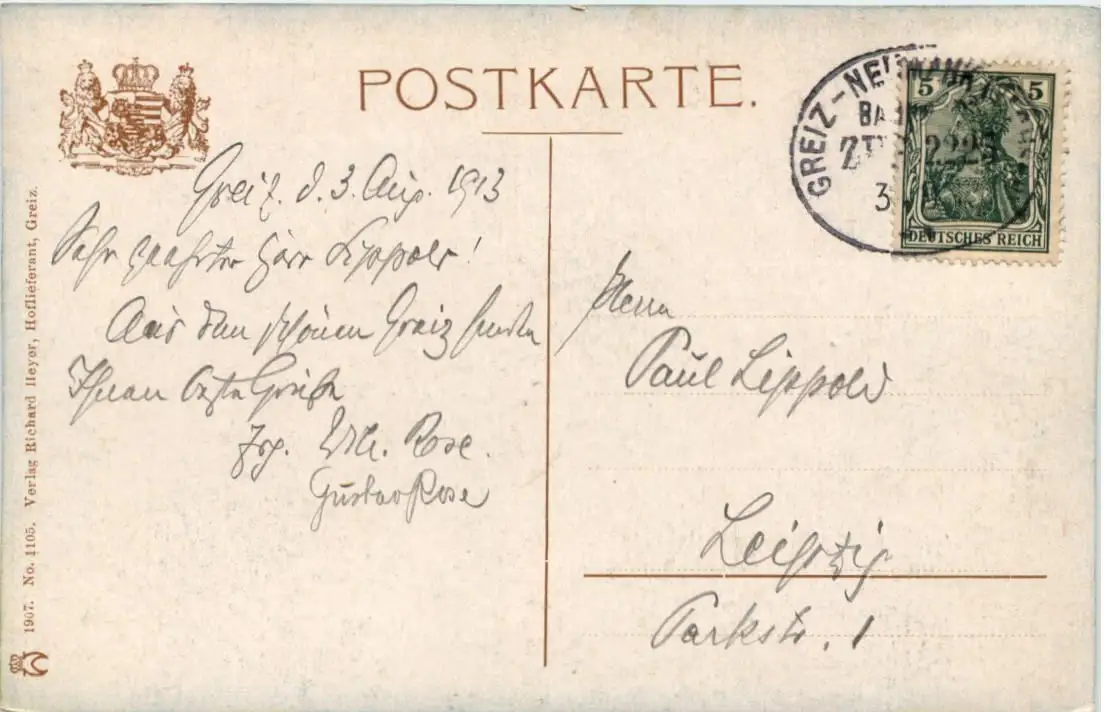 POSTKARTE.
GREIZ-NEUMARK
BAHNPOST
ZUG 2223
3
5 5
DEUTSCHES REICH
Greiz. d. 3. Aug. 1913
Sehr geehrter Herr Lippold!
Aus dem schönen Greiz senden
Ihnen beste Grüße
Wilh. Rose.
Gustav Rose
Herrn
Paul Lippold
Leipzig
Parkstr. 1
1907. No. 1105. Verlag Richard Heyer, Hoflieferant, Greiz.